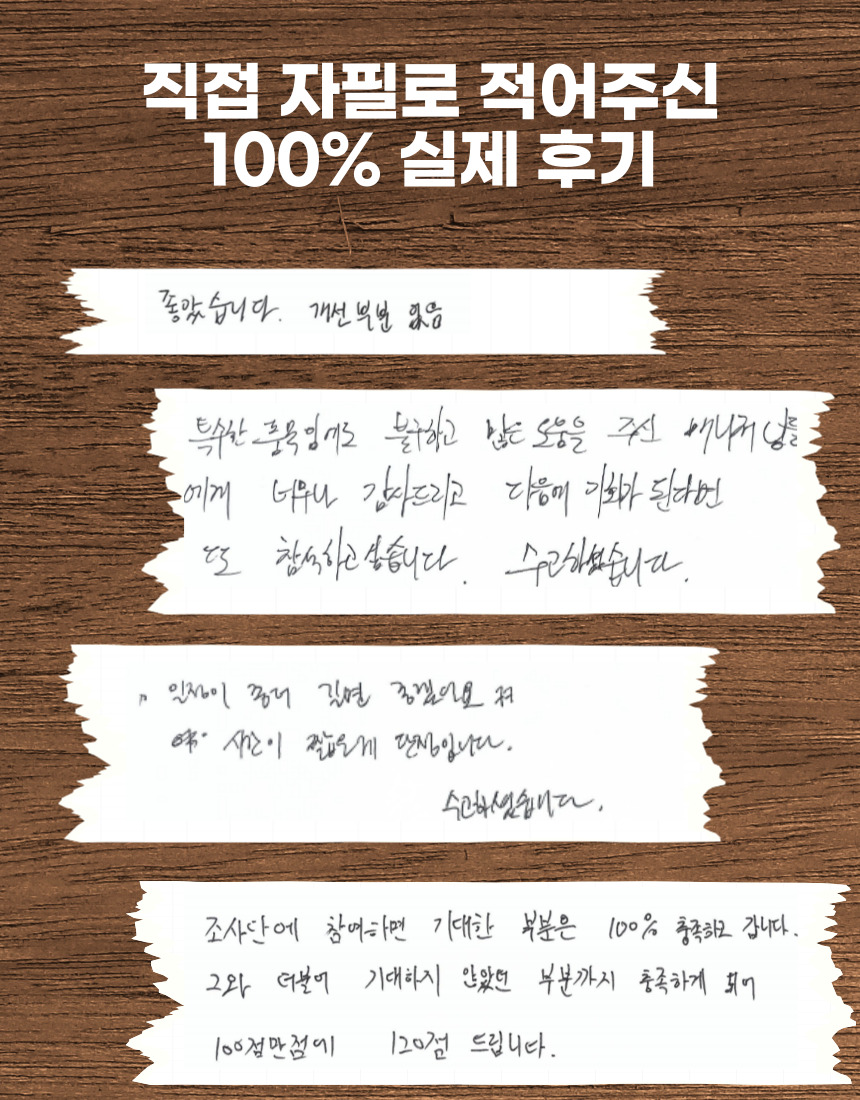 직접 자필로 적어주신
100% 실제 후기
좋았습니다. 개선부분 없음
특수한 품목임에도 불구하고 많은 도움을 주신 매니저님들
에게 너무나 감사드리고 다음에 기회가 된다면
또 참석하고싶습니다. 수고하셨습니다.
일정이 좀더 길면 좋겠어요
시간이 짧은게 단점입니다.
수고하셨습니다.
조사단에 참여하면 기대한 부분은 100% 충족하고 갑니다.
그와 더불어 기대하지 않았던 부분까지 충족하게 되어
100점만점에 120점 드립니다.